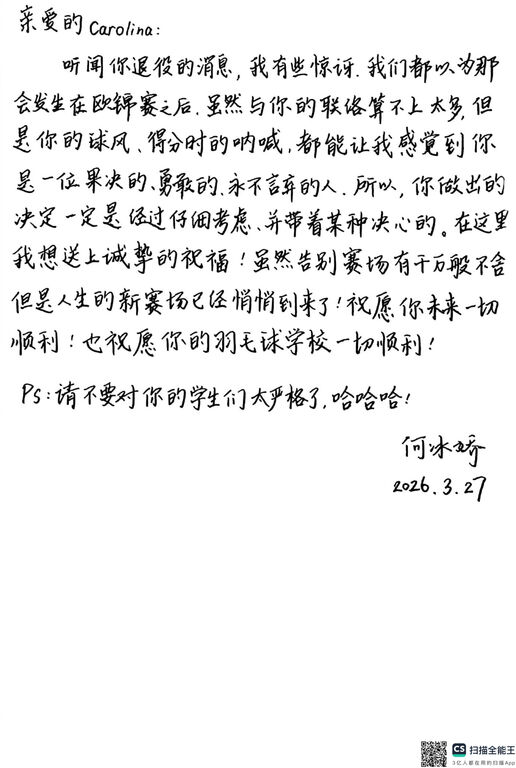 亲爱的Carolina:
听闻你退役的消息,我有些惊讶.我们都以为那
会发生在欧锦赛之后.虽然与你的联络算不上太多,但
是你的球风、得分时的呐喊,都能让我感觉到你
是一位果决的、勇敢的、永不言弃的人.所以,你做出的
决定一定是经过仔细考虑、并带着某种决心的。在这里
我想送上诚挚的祝福!虽然告别赛场有千万般不舍
但是人生的新赛场已经悄悄到来了!祝愿你未来一切
顺利!也祝愿你的羽毛球学校一切顺利!
Ps:请不要对你的学生们太严格了,哈哈哈!
何冰娇
2026.3.27
CS 扫描全能王
3亿人都在用的扫描App